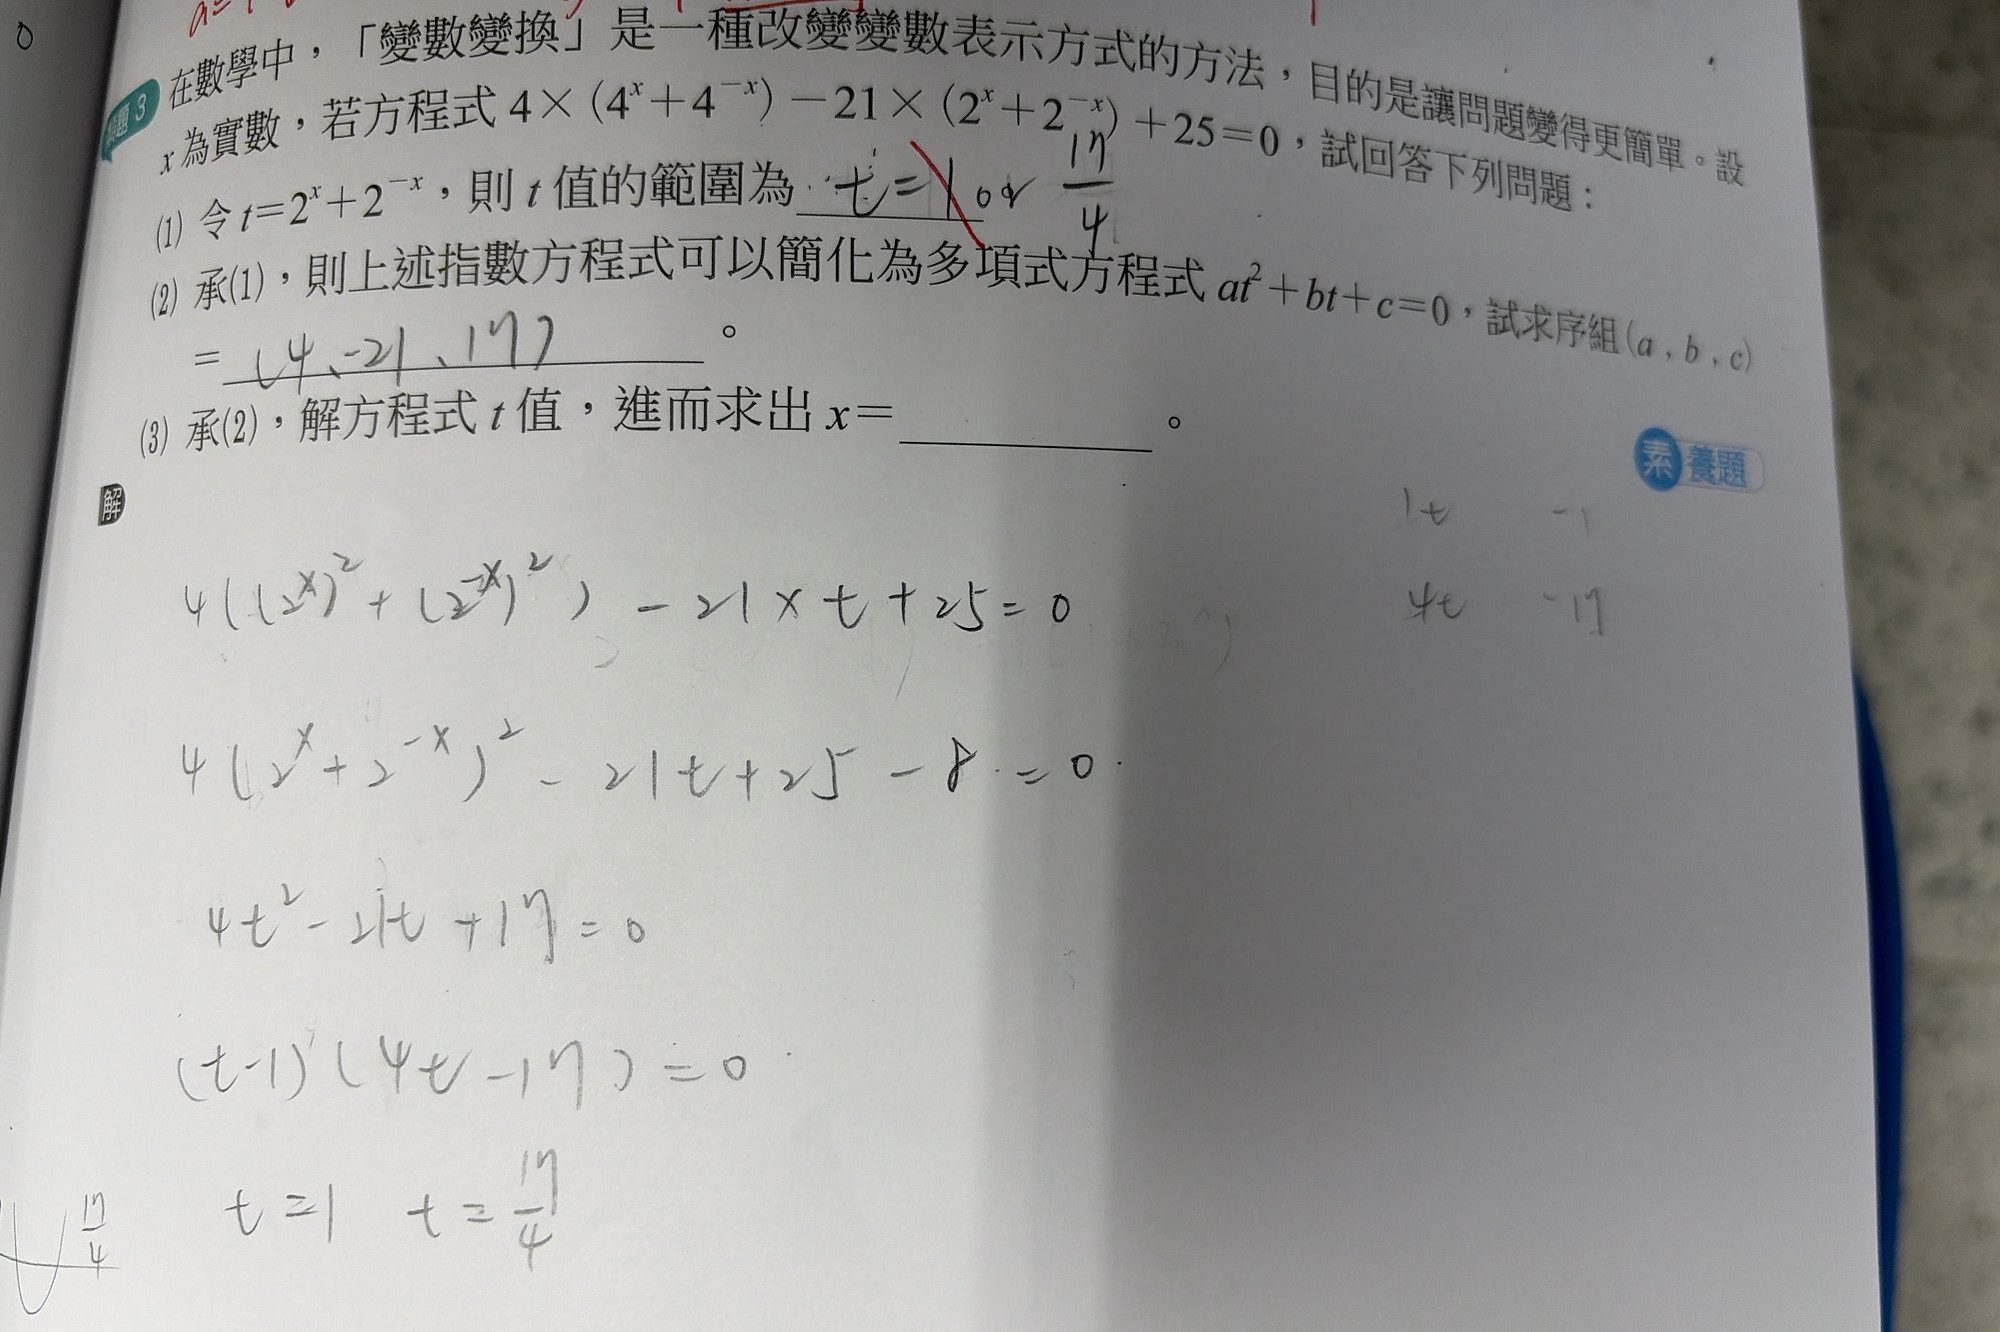 0
題3
在數學中，「變數變換」是一種改變變數表示方式的方法，目的是讓問題變得更簡單。設
x為實數，若方程式 4×（4ˣ＋4⁻ˣ）－21×（2ˣ＋2⁻ˣ）＋25＝0，試回答下列問題：
(1) 令 t=2ˣ＋2⁻ˣ，則 t 值的範圍為 t=1 or 17/4
(2) 承(1)，則上述指數方程式可以簡化為多項式方程式 at²＋bt＋c＝0，試求序組(a, b, c)
= (4、-21、17)。
(3) 承(2)，解方程式 t 值，進而求出 x＝。
素養題
解
1t -1
4t -17
4((2ˣ)²+(2⁻ˣ)²) - 21×t+25=0
4(2ˣ+2⁻ˣ)² - 21t+25 - 8=0
4t² - 21t +17=0
(t-1)(4t-17)=0
t=1 t=17/4
17/4